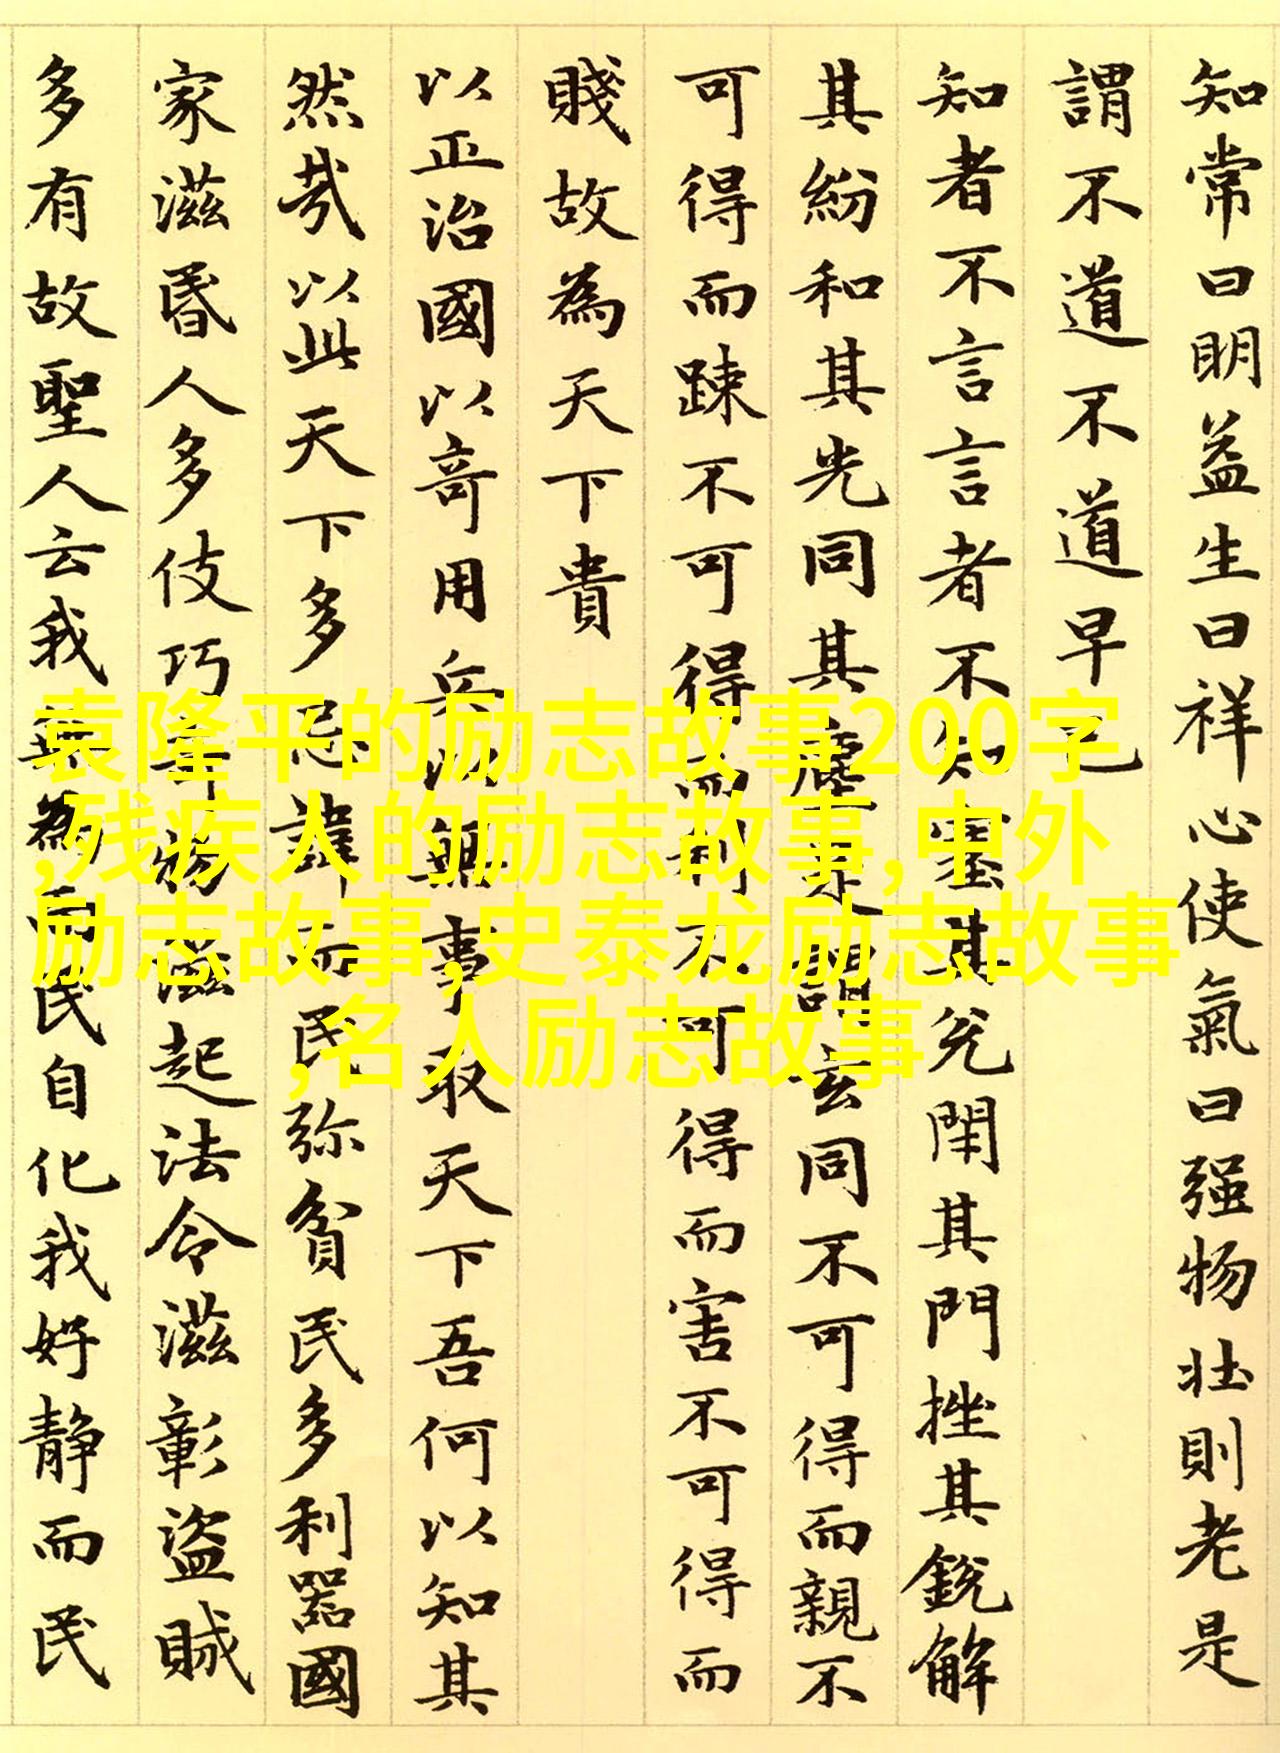 知常曰明益生曰祥心使氣曰强物壯則老是
謂不道不道早已
知者不言言者不知塞其兊閇其門挫其銳解
其紛和其光同其塵是謂玄同不可得而親不
可得而踈不可得而利不可得而害不可得而
賤故為天下貴
以正治國以竒用兵以無事取天下吾何以知其
然哉以此天下多忌諱而民弥貧民多利器國
家滋昬人多伎巧奇物滋起法令滋彰盜賊
多有故聖人云我無為而民自化我好静而民
袁隆平的励志故事200字
,残疾人的励志故事,中外
励志故事,史泰龙励志故事
,名人励志故事